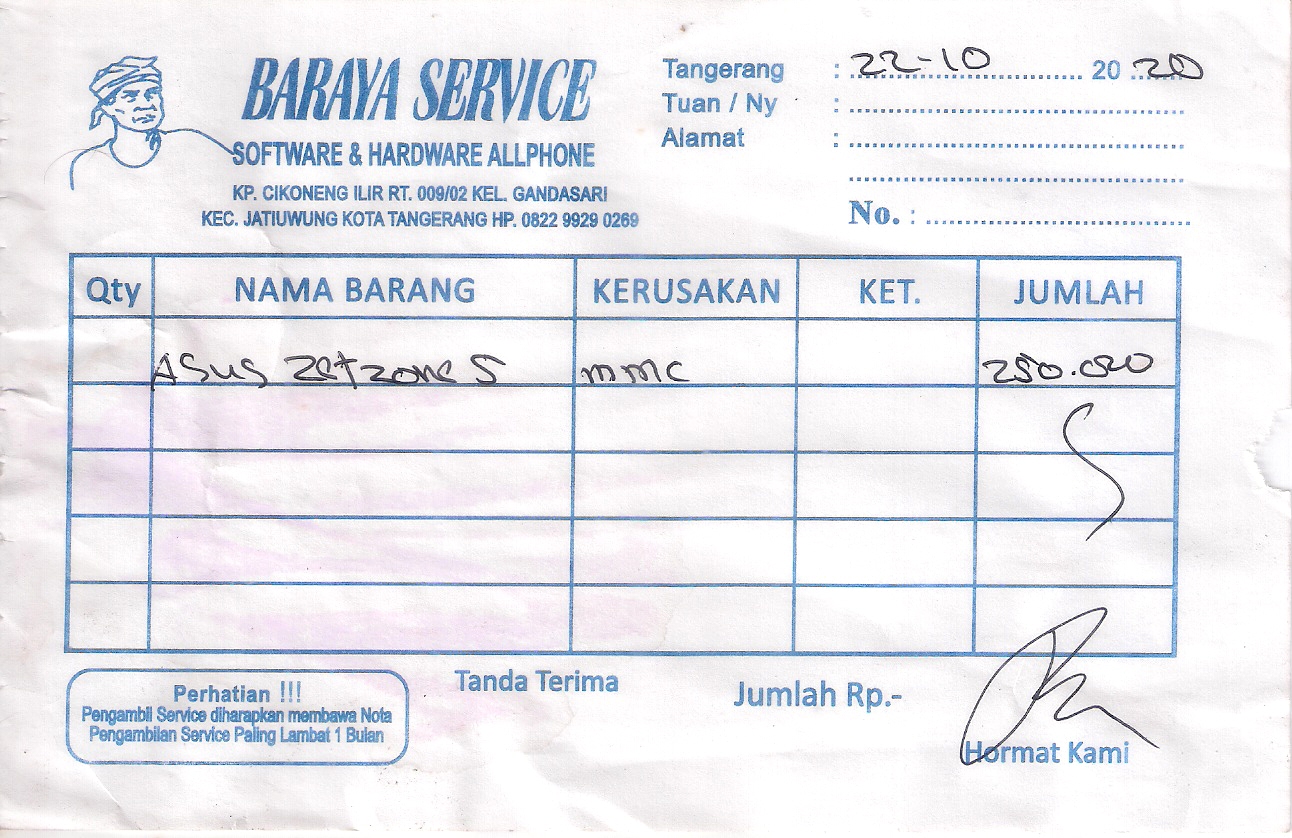 BARAYA SERVICE
SOFTWARE & HARDWARE ALLPHONE
KP. CIKONENG ILIR RT. 009/02 KEL. GANDASARI
KEC. JATIUWUNG KOTA TANGERANG HP. 0822 9929 0269
Tangerang : 22-10 20 20
Tuan / Ny :
Alamat :
No. :
Qty NAMA BARANG KERUSAKAN KET. JUMLAH
ASUS Zetzone S mmc 250.000
Perhatian !!!
Pengambil Service diharapkan membawa Nota
Pengambilan Service Paling Lambat 1 Bulan
Tanda Terima
Jumlah Rp.-
Hormat Kami